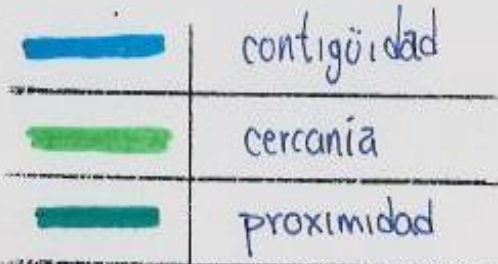 contigüidad
cercanía
proximidad